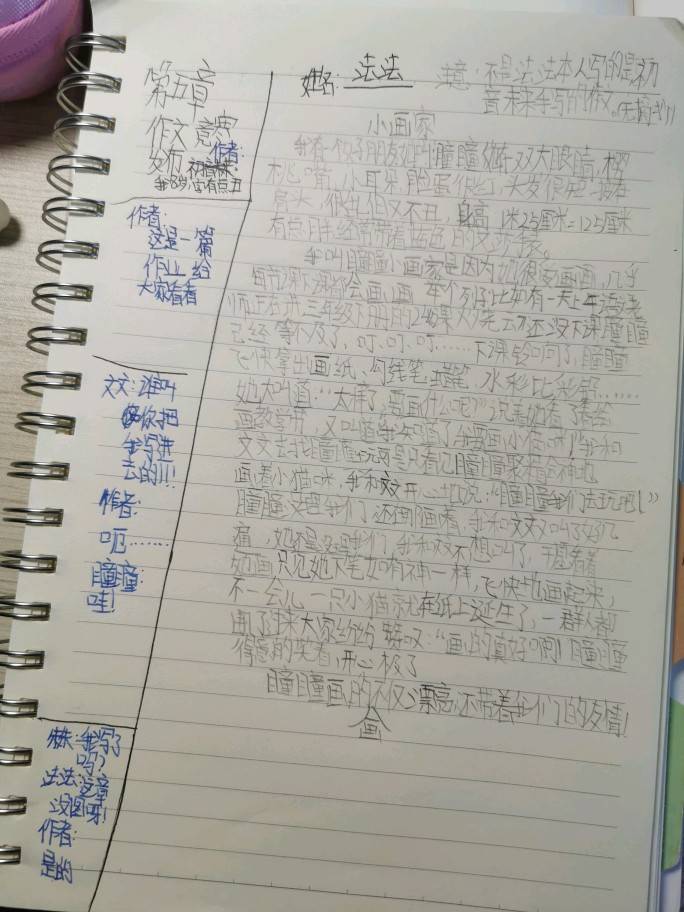 姓名：法法
注意：不是法法本人写的是初
音未来手写的假。
第五章
作文竟
发布
作者：
初音未来
我8岁，字有点丑
作者：
这是一篇
作业给
大家看看
文文：谁叫
你把
我写进
去的!!!
作者：
呃……
瞳瞳：
哇！
我写了
吗？
法法：这章
没图呀！
作者：
是的
小画家
我有一个好朋友她叫瞳瞳，她有一双大眼睛，樱
桃嘴，小耳朵，脸蛋很红，头发很短，
但又不丑，身高1米25厘米=125厘米
有点胖，经常带着蓝色的发
我叫瞳瞳小画家是因为她很爱画画，几乎
每节课下课都会画画，举个列子，比如有一天上午
师正在讲三年级下册的24课火烧云，还没下课瞳瞳
已经等不及了，叮，叮，叮……下课铃响了，瞳瞳
飞快拿出画纸，勾线笔，水彩比彩铅……
她大叫道：“太棒了，要画什么呢？”说着她看了
画教学书，又叫道我知道了我要画小猫咪!!我和
文文去找瞳瞳玩可是只看见瞳瞳聚精会神地
画着小猫咪，我和文文开心地说：“瞳瞳我们去玩吧！”
瞳瞳没理我们，还在画着，我和文文又叫了好几
遍，她还是没理我们，我和文文不想叫了，于是看着
她画，只见她下笔如有神一样，飞快地画起来，
不一会儿一只小猫就在纸上诞生了，一群人都
围了过来大家纷纷赞叹：“画的真好啊！瞳瞳
得意的笑着，开心极了
瞳瞳画的不仅漂亮，还带着我们的友情！